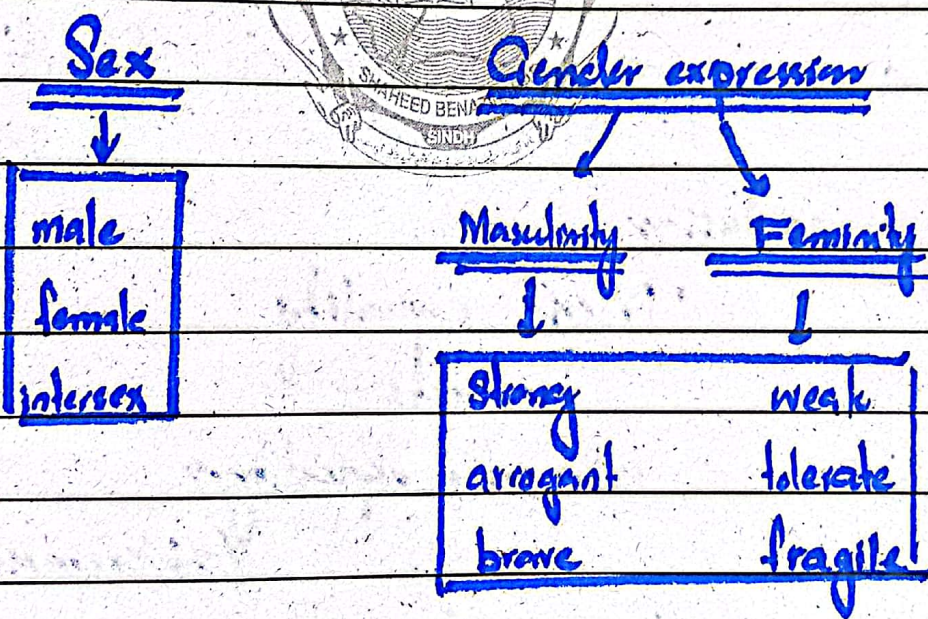 SHAHEED BENA
SINDH
Sex
Gender expression
male
female
intersex
Masculinity
Feminity
Strong
weak
arrogant
tolerate
brave
fragile